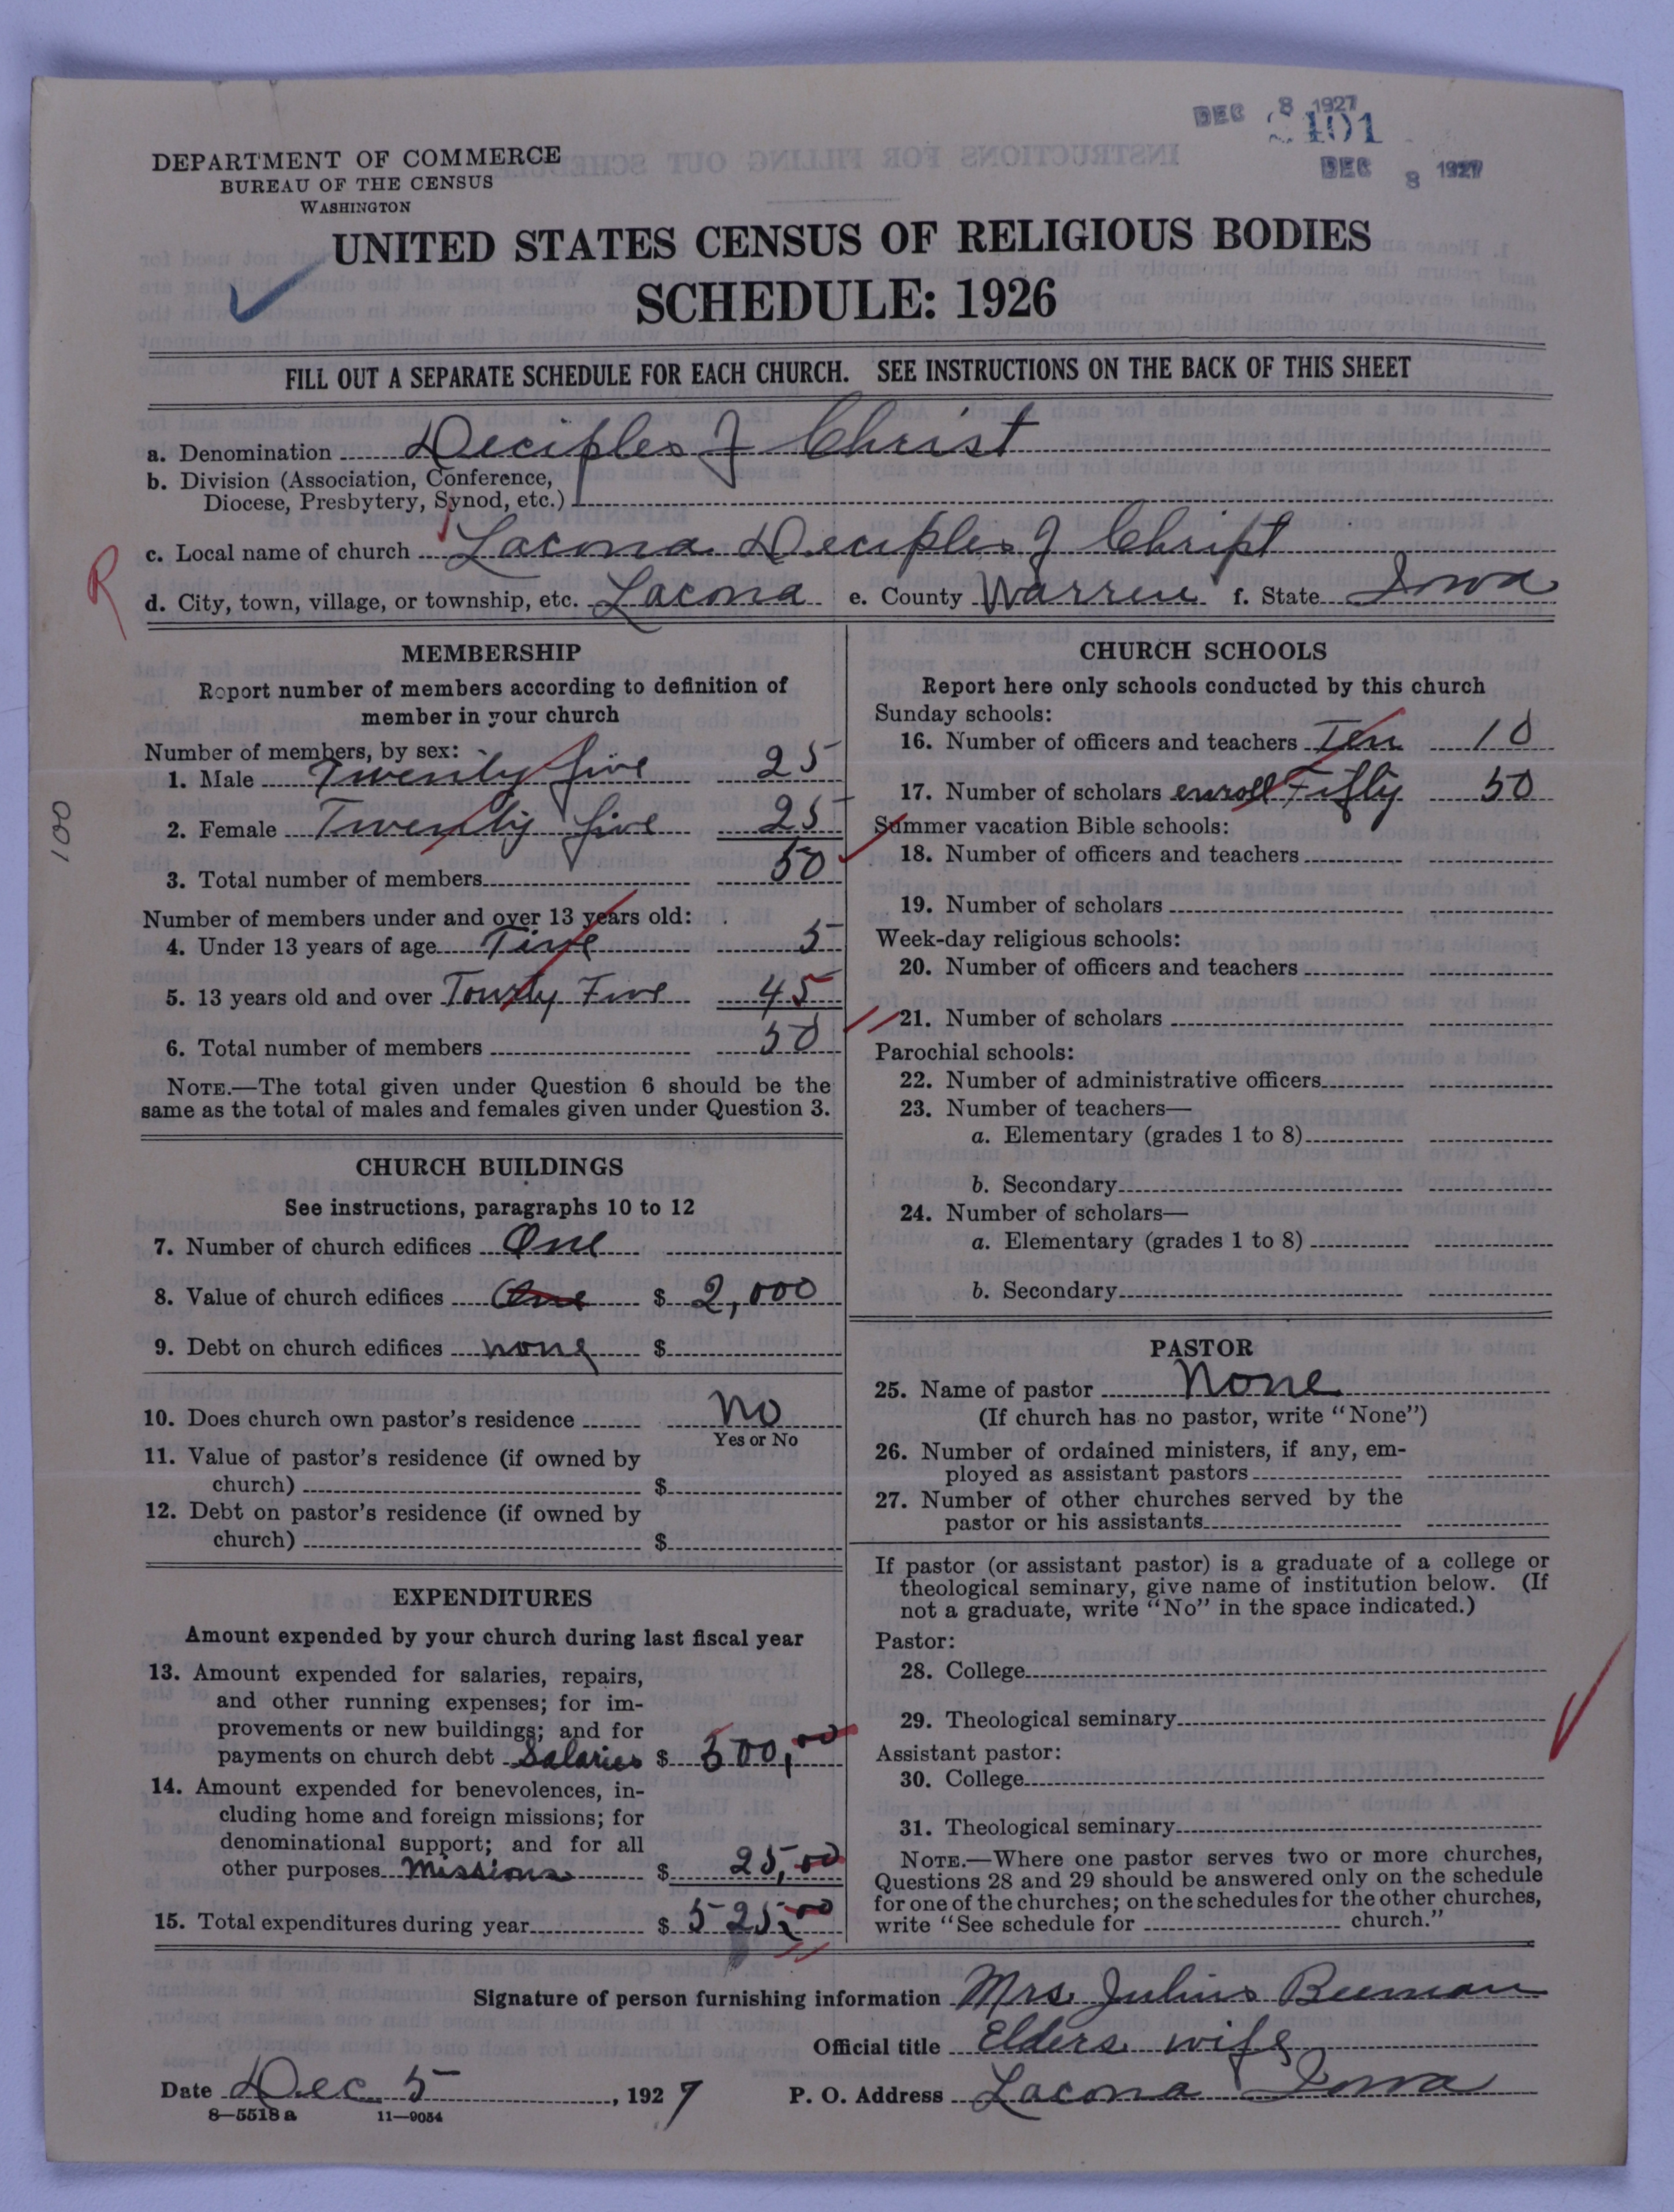 DEC 8 1927
2101
DEC 8 1927
DEPARTMENT OF COMMERCE
BUREAU OF THE CENSUS
WASHINGTON
UNITED STATES CENSUS OF RELIGIOUS BODIES
SCHEDULE: 1926
FILL OUT A SEPARATE SCHEDULE FOR EACH CHURCH. SEE INSTRUCTIONS ON THE BACK OF THIS SHEET
a. Denomination Deciples of Christ
b. Division (Association, Conference,
Diocese, Presbytery, Synod, etc.)
c. Local name of church Lacona Deciples of Christ
R
d. City, town, village, or township, etc. Lacona e. County Warren f. State Iowa
MEMBERSHIP
Report number of members according to definition of
member in your church
Number of members, by sex:
1. Male Twenty five 25
2. Female Twenty five 25
3. Total number of members 50
Number of members under and over 13 years old:
4. Under 13 years of age Five 5
5. 13 years old and over Fourty Five 45
6. Total number of members 50
NOTE.—The total given under Question 6 should be the
same as the total of males and females given under Question 3.
100
CHURCH BUILDINGS
See instructions, paragraphs 10 to 12
7. Number of church edifices One
8. Value of church edifices One $ 2,000
9. Debt on church edifices none $
10. Does church own pastor's residence No
Yes or No
11. Value of pastor's residence (if owned by
church) $
12. Debt on pastor's residence (if owned by
church) $
EXPENDITURES
Amount expended by your church during last fiscal year
13. Amount expended for salaries, repairs,
and other running expenses; for im-
provements or new buildings; and for
payments on church debt Salaries $ 500,00
14. Amount expended for benevolences, in-
cluding home and foreign missions; for
denominational support; and for all
other purposes Missions $ 25,00
15. Total expenditures during year $ 525,00
CHURCH SCHOOLS
Report here only schools conducted by this church
Sunday schools:
16. Number of officers and teachers Ten 10
17. Number of scholars enroll Fifty 50
Summer vacation Bible schools:
18. Number of officers and teachers
19. Number of scholars
Week-day religious schools:
20. Number of officers and teachers
21. Number of scholars
Parochial schools:
22. Number of administrative officers
23. Number of teachers—
a. Elementary (grades 1 to 8)
b. Secondary
24. Number of scholars—
a. Elementary (grades 1 to 8)
b. Secondary
PASTOR
25. Name of pastor None
(If church has no pastor, write "None")
26. Number of ordained ministers, if any, em-
ployed as assistant pastors
27. Number of other churches served by the
pastor or his assistants
If pastor (or assistant pastor) is a graduate of a college or
theological seminary, give name of institution below. (If
not a graduate, write "No" in the space indicated.)
Pastor:
28. College
29. Theological seminary
Assistant pastor:
30. College
31. Theological seminary
NOTE.—Where one pastor serves two or more churches,
Questions 28 and 29 should be answered only on the schedule
for one of the churches; on the schedules for the other churches,
write "See schedule for church."
Signature of person furnishing information Mrs. Julius Beeman
Official title Elders wife
Date Dec. 5, 1927 P. O. Address Lacona Iowa
8—5518 a 11—9054